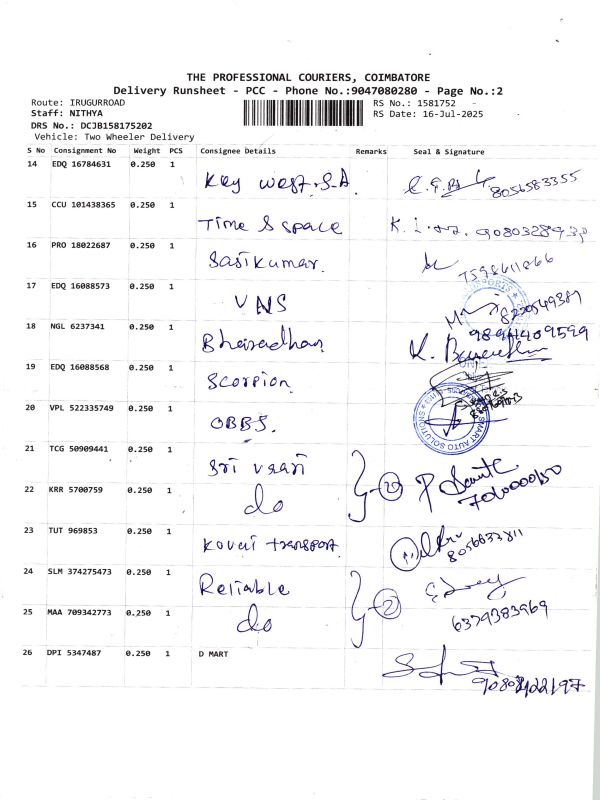 THE PROFESSIONAL COURIERS, COIMBATORE
Delivery Runsheet - PCC - Phone No.:9047080280 - Page No.:2
Route: IRUGURROAD RS No.: 1581752
Staff: NITHYA RS Date: 16-Jul-2025
DRS No.: DCJB158175202
Vehicle: Two Wheeler Delivery
S No Consignment No Weight PCS Consignee Details Remarks Seal & Signature
14 EDQ 16784631 0.250 1 Key West.S.A 8056583355
15 CCU 101438365 0.250 1 Time & space
16 PRO 18022687 0.250 1 Sasikumar.
17 EDQ 16088573 0.250 1 VNS
18 NGL 6237341 0.250 1 K.
19 EDQ 16088568 0.250 1 Scorpion
20 VPL 522335749 0.250 1 OBBS. SMART AUTO SOLUTIONS
21 TCG 50909441 0.250 1 Sri
22 KRR 5700759 0.250 1 do 2
23 TUT 969853 0.250 1 Kovai transport.
24 SLM 374275473 0.250 1 Reliable
25 MAA 709342773 0.250 1 do 2 6379383969
26 DPI 5347487 0.250 1 D MART